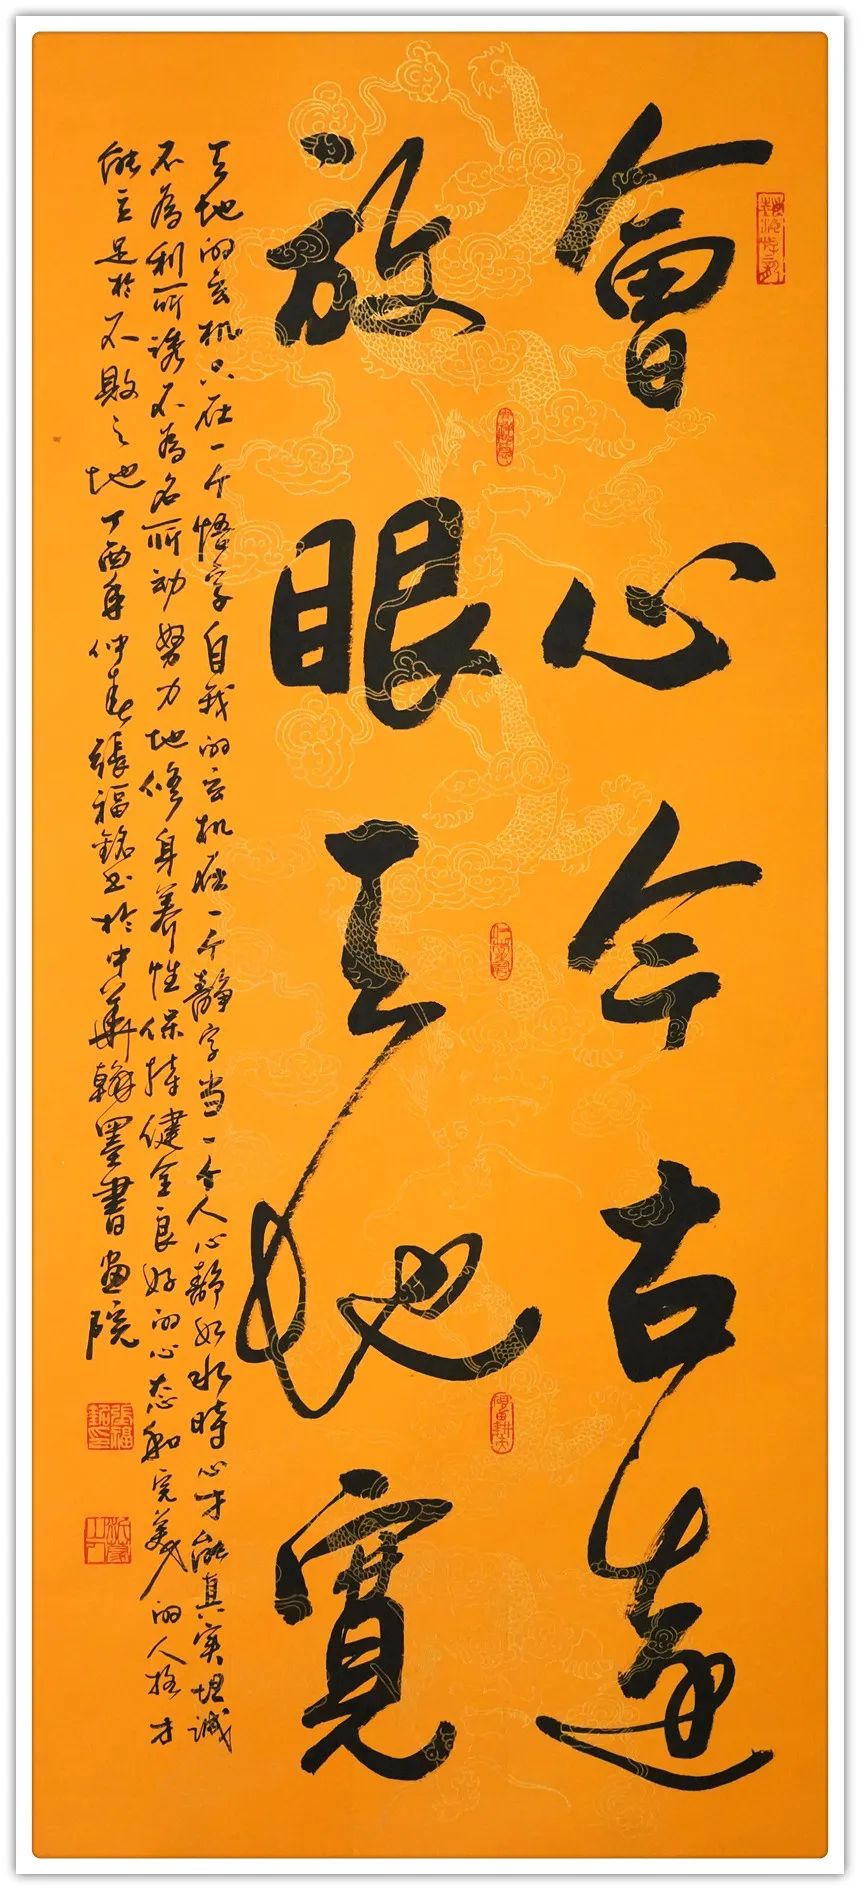 會心今古遠
放眼天地寬
天地的玄机只在一个悟字自我的玄机在一个静字当一个人心静如水時心才能真实坦誠
不為利所诱不為名所动努力地修身养性保持健全良好的心态和完美的人格才
能立足於不敗之地丁酉年仲春張福銘书於中華翰墨書畫院
張福銘印
沂蒙山人